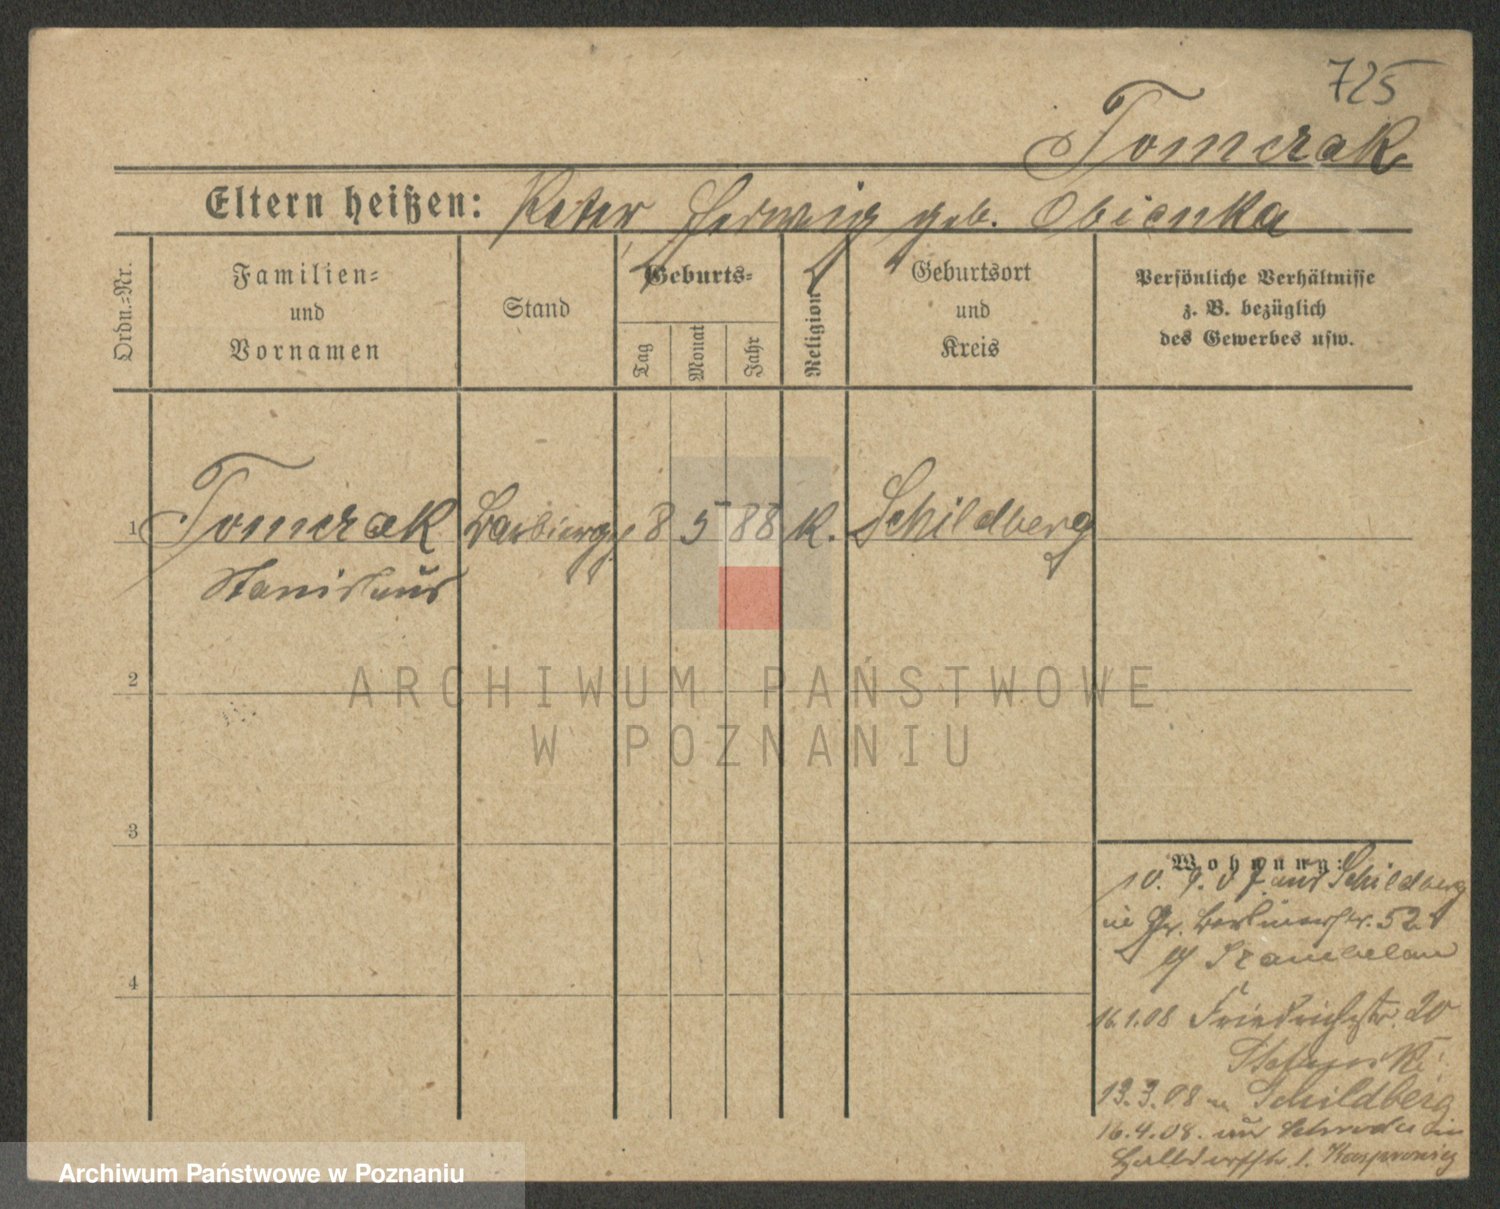 725
Tomczak
Eltern heißen: Peter Hedwig geb. Obienka
Ordn.=Nr.
Familien=
und
Vornamen
Stand
Geburts=
Tag
Monat
Jahr
Religion
Geburtsort
und
Kreis
Persönliche Verhältnisse
z. B. bezüglich
des Gewerbes usw.
1 Tomczak Barbierg. 8 5 88 K. Schildberg
Stanislaus
2
3
4
Wohnung:
10. 9. 07 aus Schildberg
in Gr. Berlinerstr. 52
16.1.08 Friedrichstr. 20
13.3.08 n Schildberg
16.4.08. aus in
1. Kasprowicz
ARCHIWUM PAŃSTWOWE
W POZNANIU
Archiwum Państwowe w Poznaniu